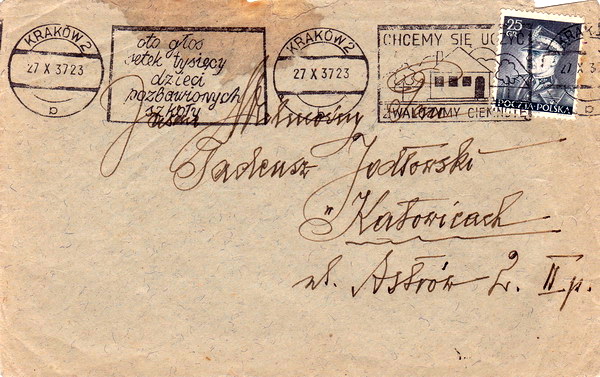 KRAKÓW 2
27 X 37 23
b
oto głos
setek tysięcy
dzieci
pozbawionych
szkoły
KRAKÓW 2
27 X 37 23
b
CHCEMY SIĘ UCZYĆ
ZWALCZAMY CIEMNOTĘ
25
GR
POCZTA POLSKA
KRAK
27 X
Wielmożny
Tadeusz Jodłowski
w Katowicach
ul. Astrów 2. II p.